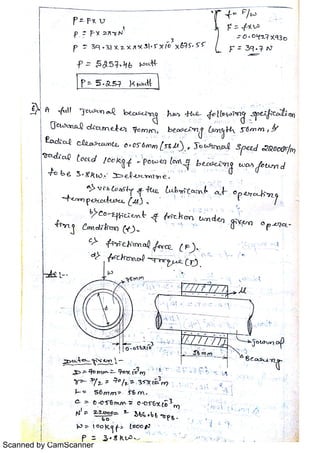 P = F x U
P = F x 2πrN'
P = 39.31 x 2 x π x 31.5 x 10³ x 675.55
P = 5257.46 watt
P = 5.257 K watt
f = F/W
F = f x W
= 0.0427 x 930
F = 39.7 N
A full Journal bearing has the following specification
Journal diameter 70mm, bearing length 56mm,
Radial clearance 0.056mm (56μ), Journal Speed 22000r/m
radial load 100kgf - power loss of bearing was found
to be 3.8KW. Determine.
a) viscosity of the lubricant at operating
temperature (μ).
b) Co-efficient of friction under given opera-
ting Condition (f).
c) frictional force (F).
d) frictional Torque (T).
W
70mm
d
0.056x10³
μ
Journal
56mm
Bearing
Data given:-
D = 70mm = 70x10³m
r = D/2 = 70/2 = 35x10³m
L = 56mm = 56 m.
C = 0.056mm = 0.056x10³m
N' = 22000/60 = 366.66 rps.
W = 100kgf = 1000N
P = 3.8KW.
Scanned by CamScanner